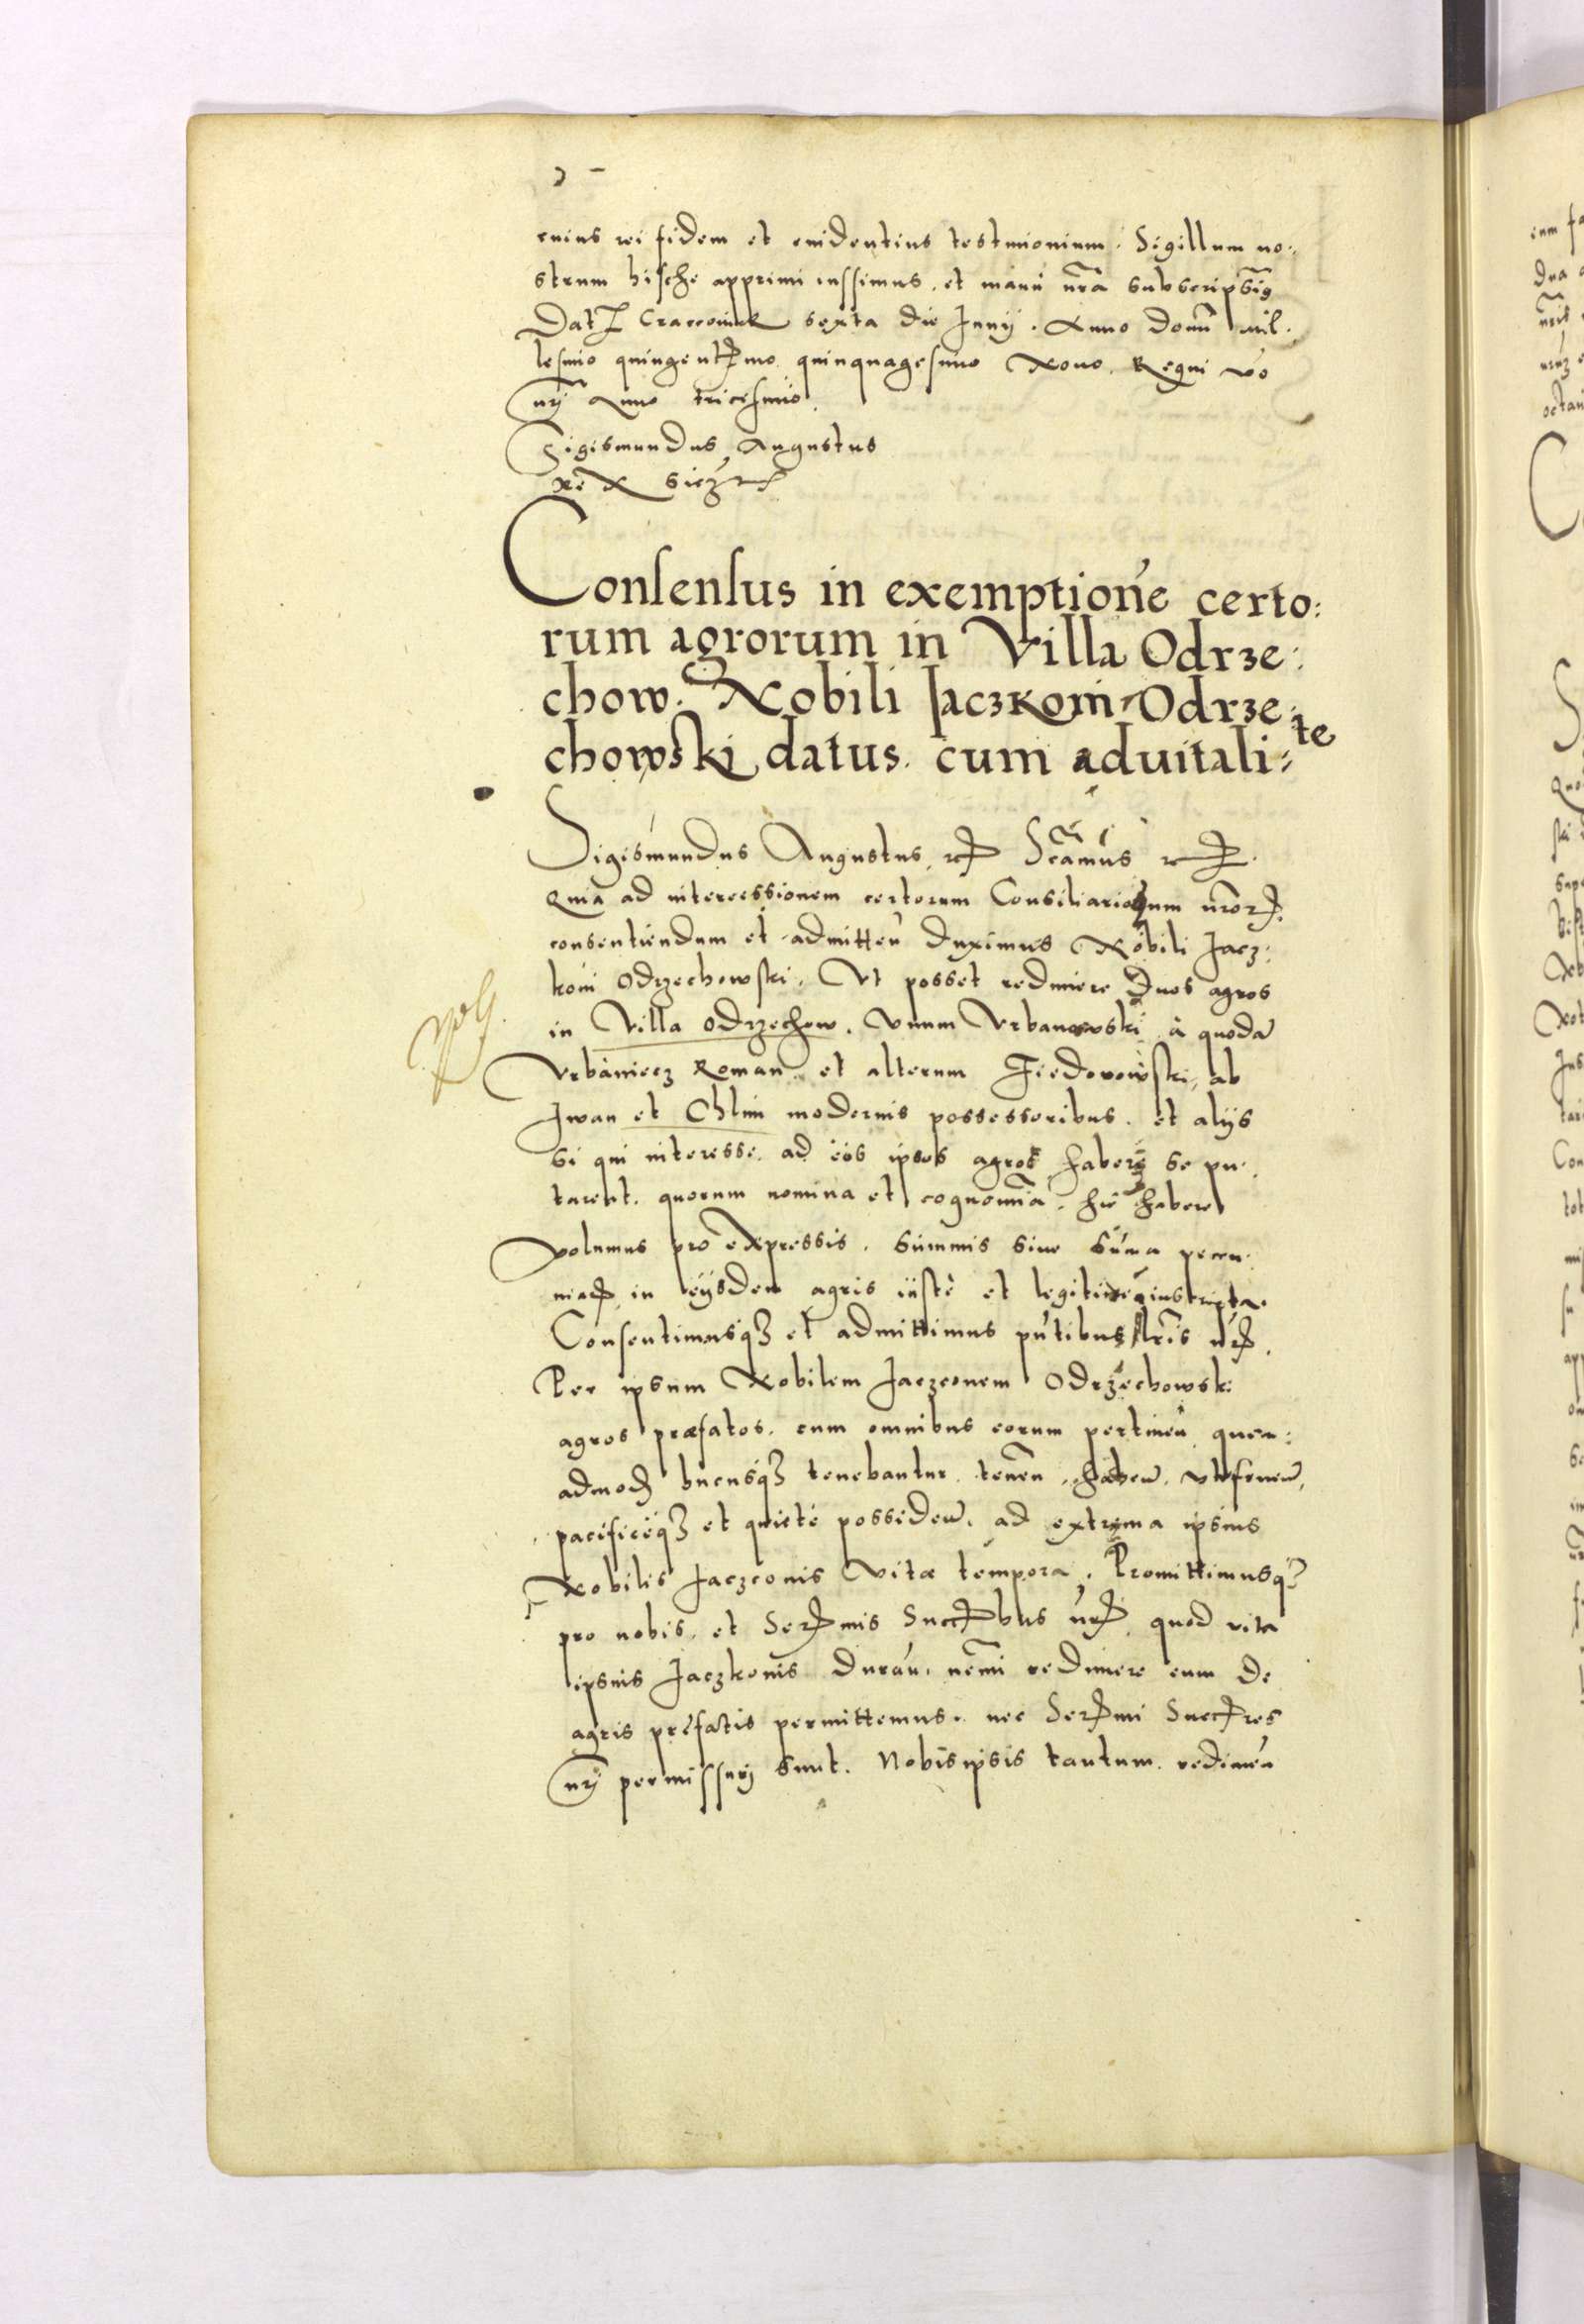 cuius rei fidem et euidentius testimonium. Sigillum no:
strum hisce apprimi iussimus. et manu nra subscripsimus
Dat Craccouiae sexta die Junij. Anno domini mil.
lesimo quingentmo quinquagesimo Nono. Regni vo
nri Anno tricesimo.
Sigismundus Augustus
rex
Consensus in exemptione certo:
rum agrorum in Villa Odrze:
chow. Nobili Jaczkoni Odrze:
chowski datus. cum aduitali:te
Sigismundus Augustus etc Scamus etc
Quia ad intercessionem certorum Consiliariorum nror
consentiendum et admitten duximus Nobili Jacz:
koni Odrzechowski. Vt posset redimere duos agros
in Villa Odrzechow. Vnum Vrbanowski à quoda
Vrbaniecz Roman et alterum Fiedorowski, ab
Iwan et Chlim modernis possessoribus. et alijs
si qui interesse. ad eos ipsos agros habere se pu.
tarent. quorum nomina et cognomina. hic habere
volumus pro expressis. summis siue suma pecu.
niar in eijsdem agris iuste et legitime inscripta.
Consentimusq3 et admittimus pntibus lris nris.
Per ipsum Nobilem Jaczconem Odrzechowski
agros præfatos. cum omnibus eorum pertinen quem:
admod hucusq3 tenebantur. tenen. haben. vtifruen.
pacificeq3 et quiete possiden. ad extrema ipsius
Nobilis Jaczconis vitæ tempora. Promittimusq3
pro nobis. et Sermis Succbus nris quod vita
ipsius Jaczkonis duran. nemi redimere eum de
agris prefatis permittemus. nec Sermi Succres
nri permissuri sunt. Nobis ipsis tantum. redimen